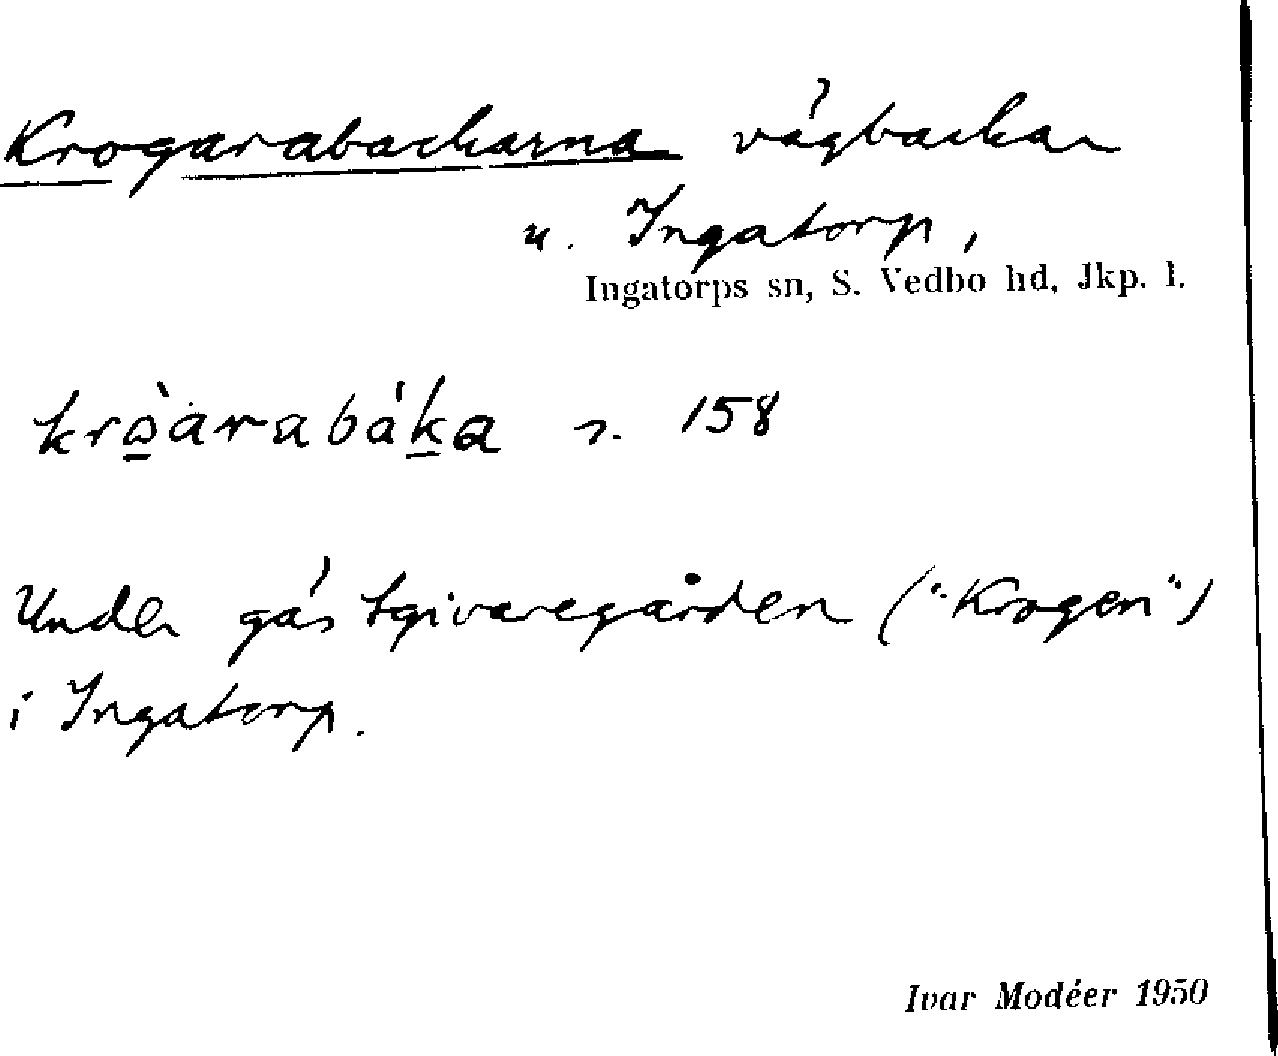 Krogarabackarna vägbackar
u. Ingatorp,
Ingatorps sn, S. Vedbo hd, Jkp. l.
krò̱arabáḵa s. 158
Under gästgivaregården ("Krogen")
i Ingatorp.
Ivar Modéer 1950